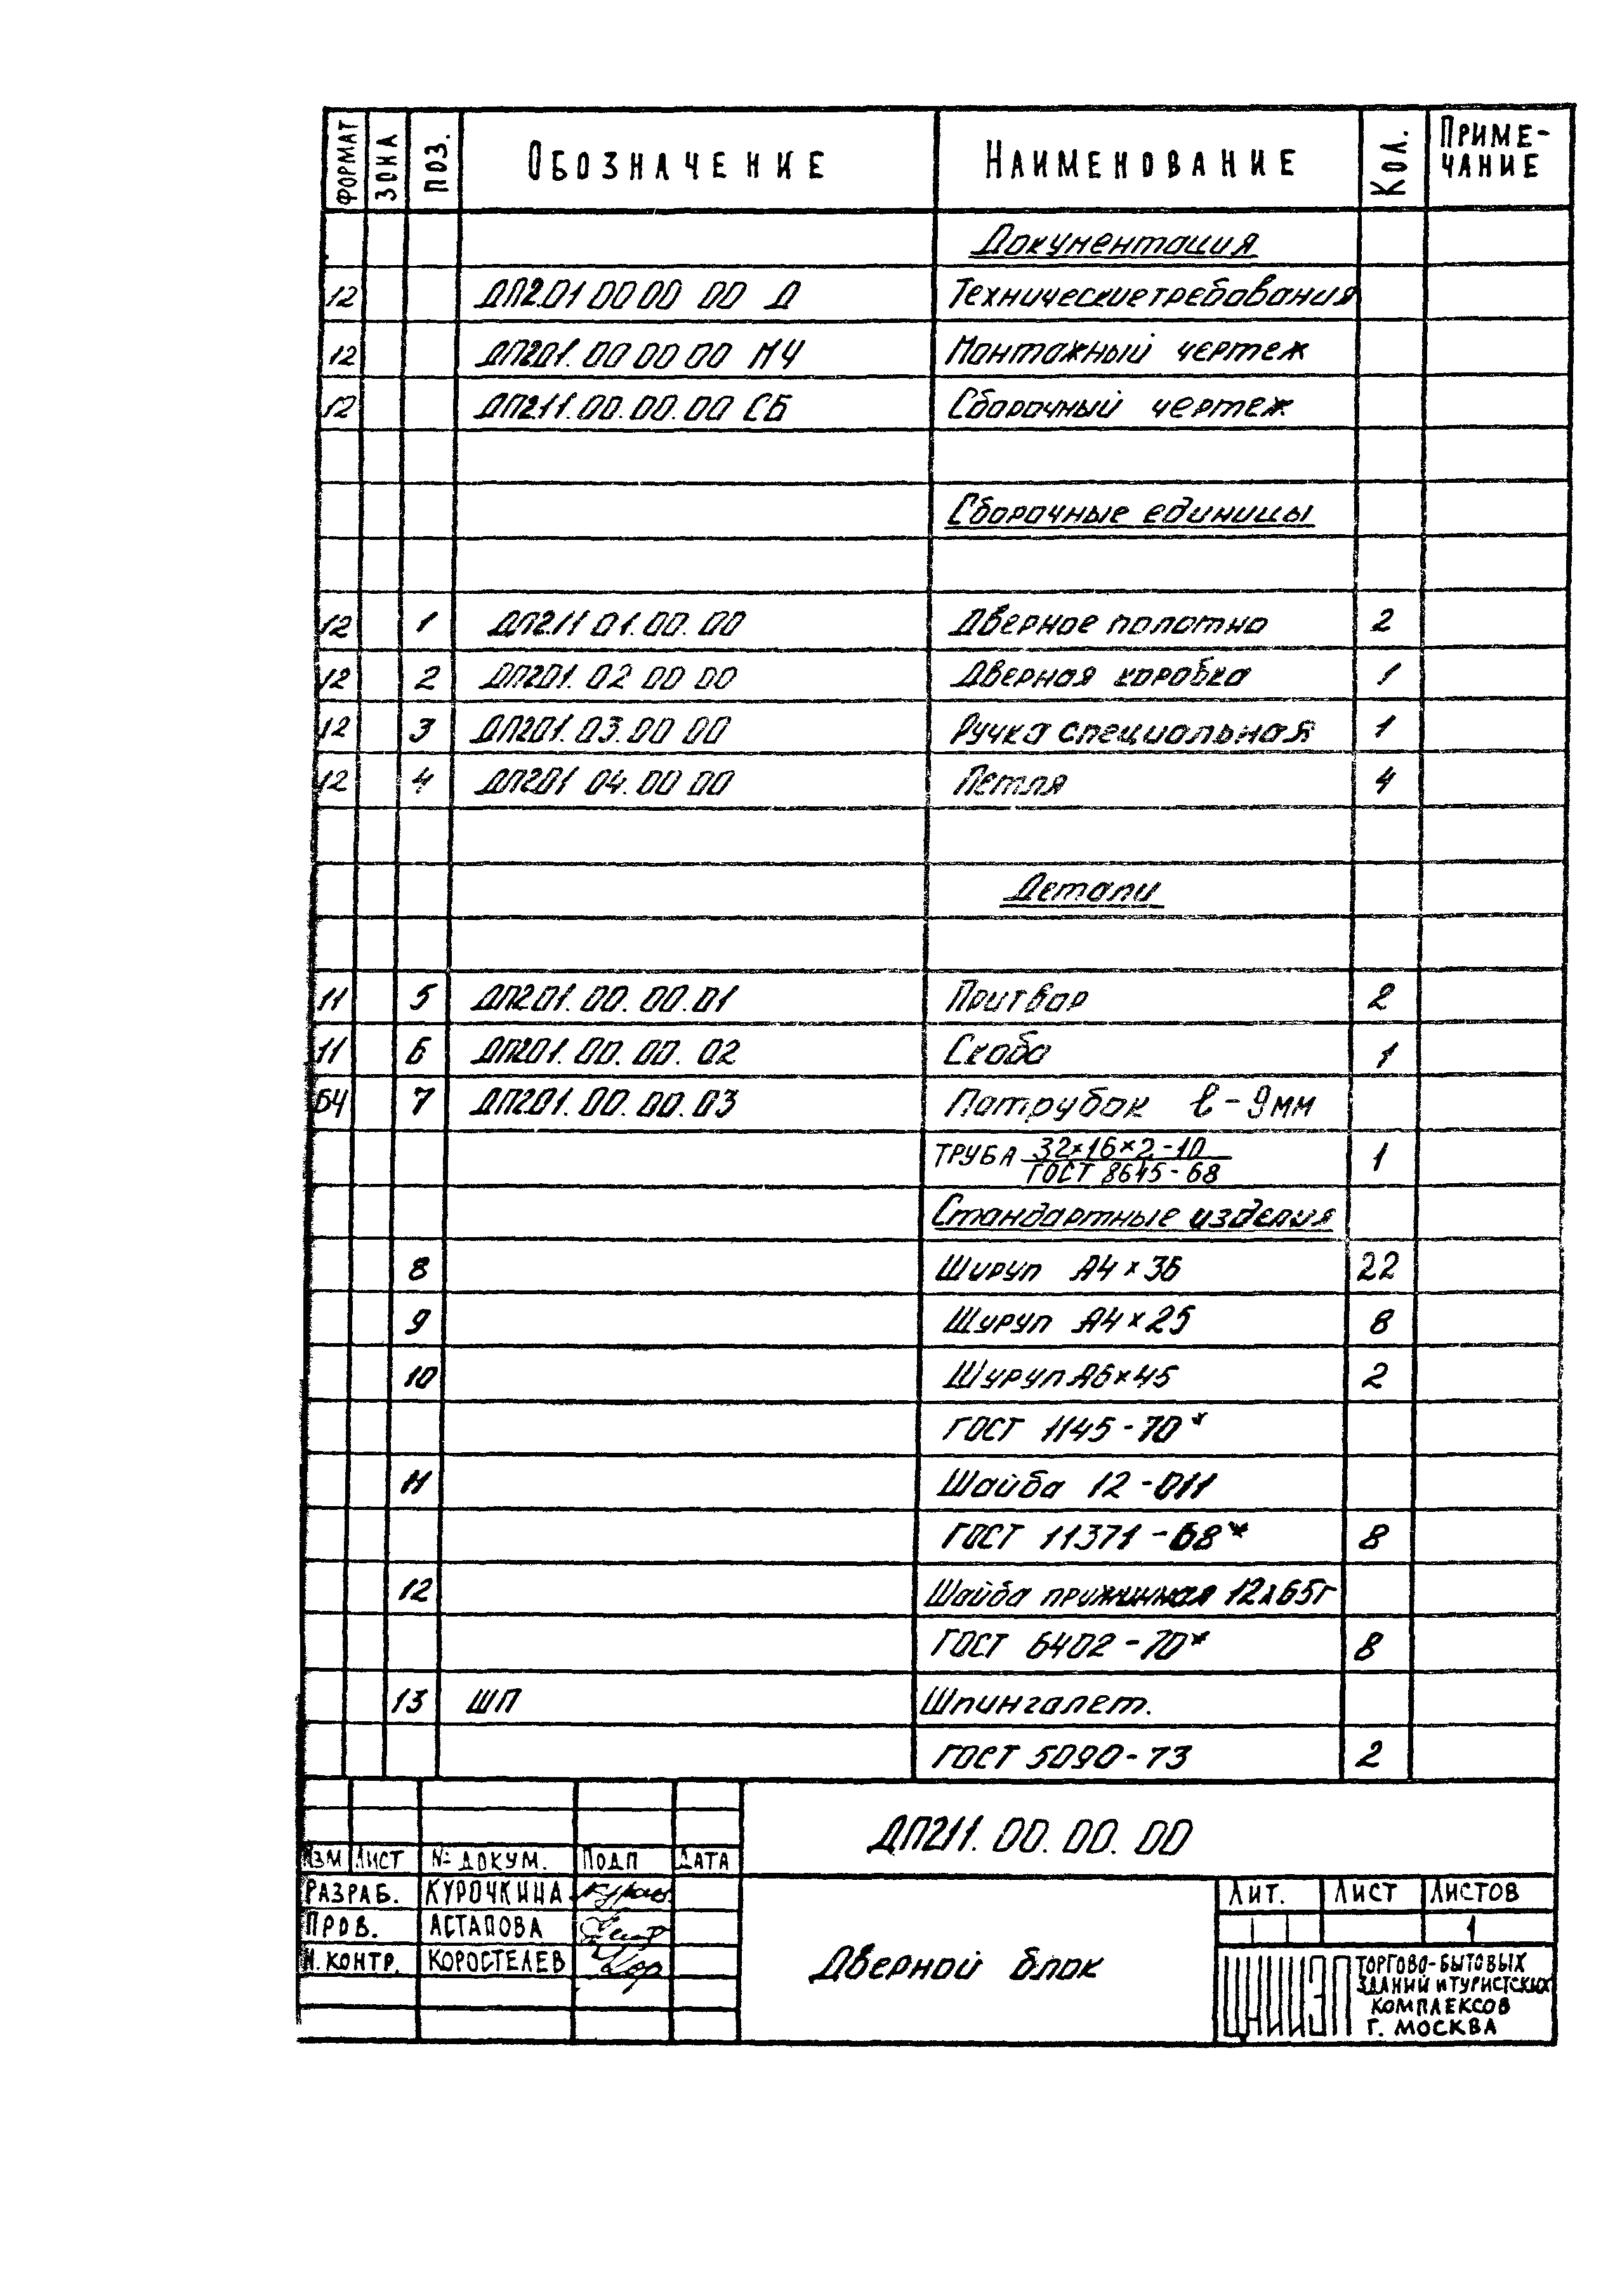 ФОРМАТ ЗОНА ПОЗ. ОБОЗНАЧЕНИЕ НАИМЕНОВАНИЕ КОЛ. ПРИМЕ-
ЧАНИЕ
Документация
12 ДП201 00 00 00 Д Технические требования
12 ДП201.00 00 00 МЧ Монтажный чертеж
12 ДП211.00.00.00 СБ Сборочный чертеж
Сборочные единицы
12 1 ДП211 01.00.00 Дверное полотно 2
12 2 ДП201.02 00 00 Дверная коробка 1
12 3 ДП201.03.00 00 Ручка специальная 1
12 4 ДП201 04.00 00 Петля 4
Детали
11 5 ДП201.00.00.01 Притвор 2
11 6 ДП201.00.00.02 Скоба 1
БЧ 7 ДП201.00.00.03 Патрубок ℓ-9мм
ТРУБА 32×16×2-10
ГОСТ 8645-68 1
Стандартные изделия
8 Шуруп А4×36 22
9 Шуруп А4×25 8
10 Шуруп А6×45 2
ГОСТ 1145-70*
11 Шайба 12-011
ГОСТ 11371-68* 8
12 Шайба пружинная 12 65Г
ГОСТ 6402-70* 8
13 ШП Шпингалет.
ГОСТ 5090-73 2
ДП211.00.00.00
ИЗМ ЛИСТ № ДОКУМ. ПОДП ДАТА
РАЗРАБ. КУРОЧКИНА
ПРОВ. АСТАПОВА
Н.КОНТР. КОРОСТЕЛЕВ
Дверной блок
ЛИТ. ЛИСТ ЛИСТОВ
1
ЦНИИЭП ТОРГОВО-БЫТОВЫХ
ЗДАНИЙ И ТУРИСТСКИХ
КОМПЛЕКСОВ
Г. МОСКВА